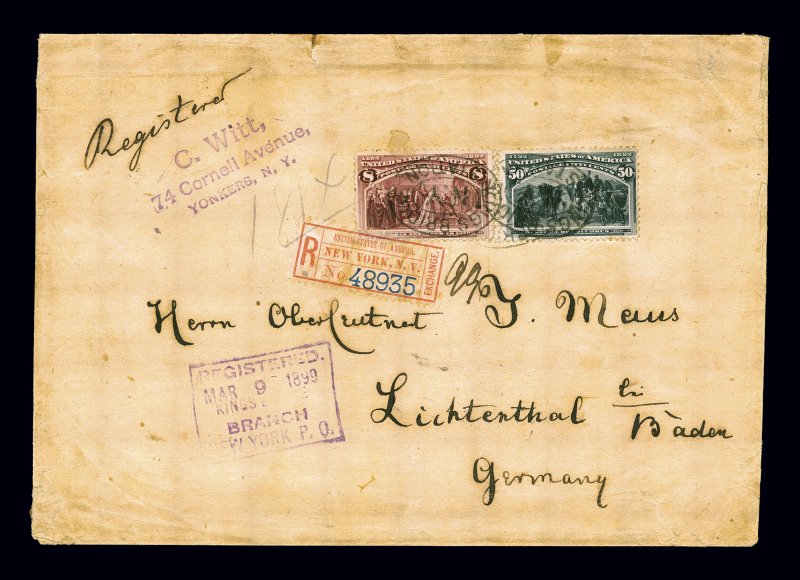 Registered
C. Witt,
74 Cornell Avenue,
YONKERS, N. Y.
1492 1892
UNITED STATES OF AMERICA
8 8
1492 1892
UNITED STATES OF AMERICA
50 50
184
R
UNITED STATES OF AMERICA.
NEW YORK, N. Y.
No 48935
EXCHANGE.
Herrn Oberleutnet J. Maus
REGISTERED.
MAR 9 1899
KINGS
BRANCH
NEW YORK P. O.
Lichtenthal bei
Baden
Germany